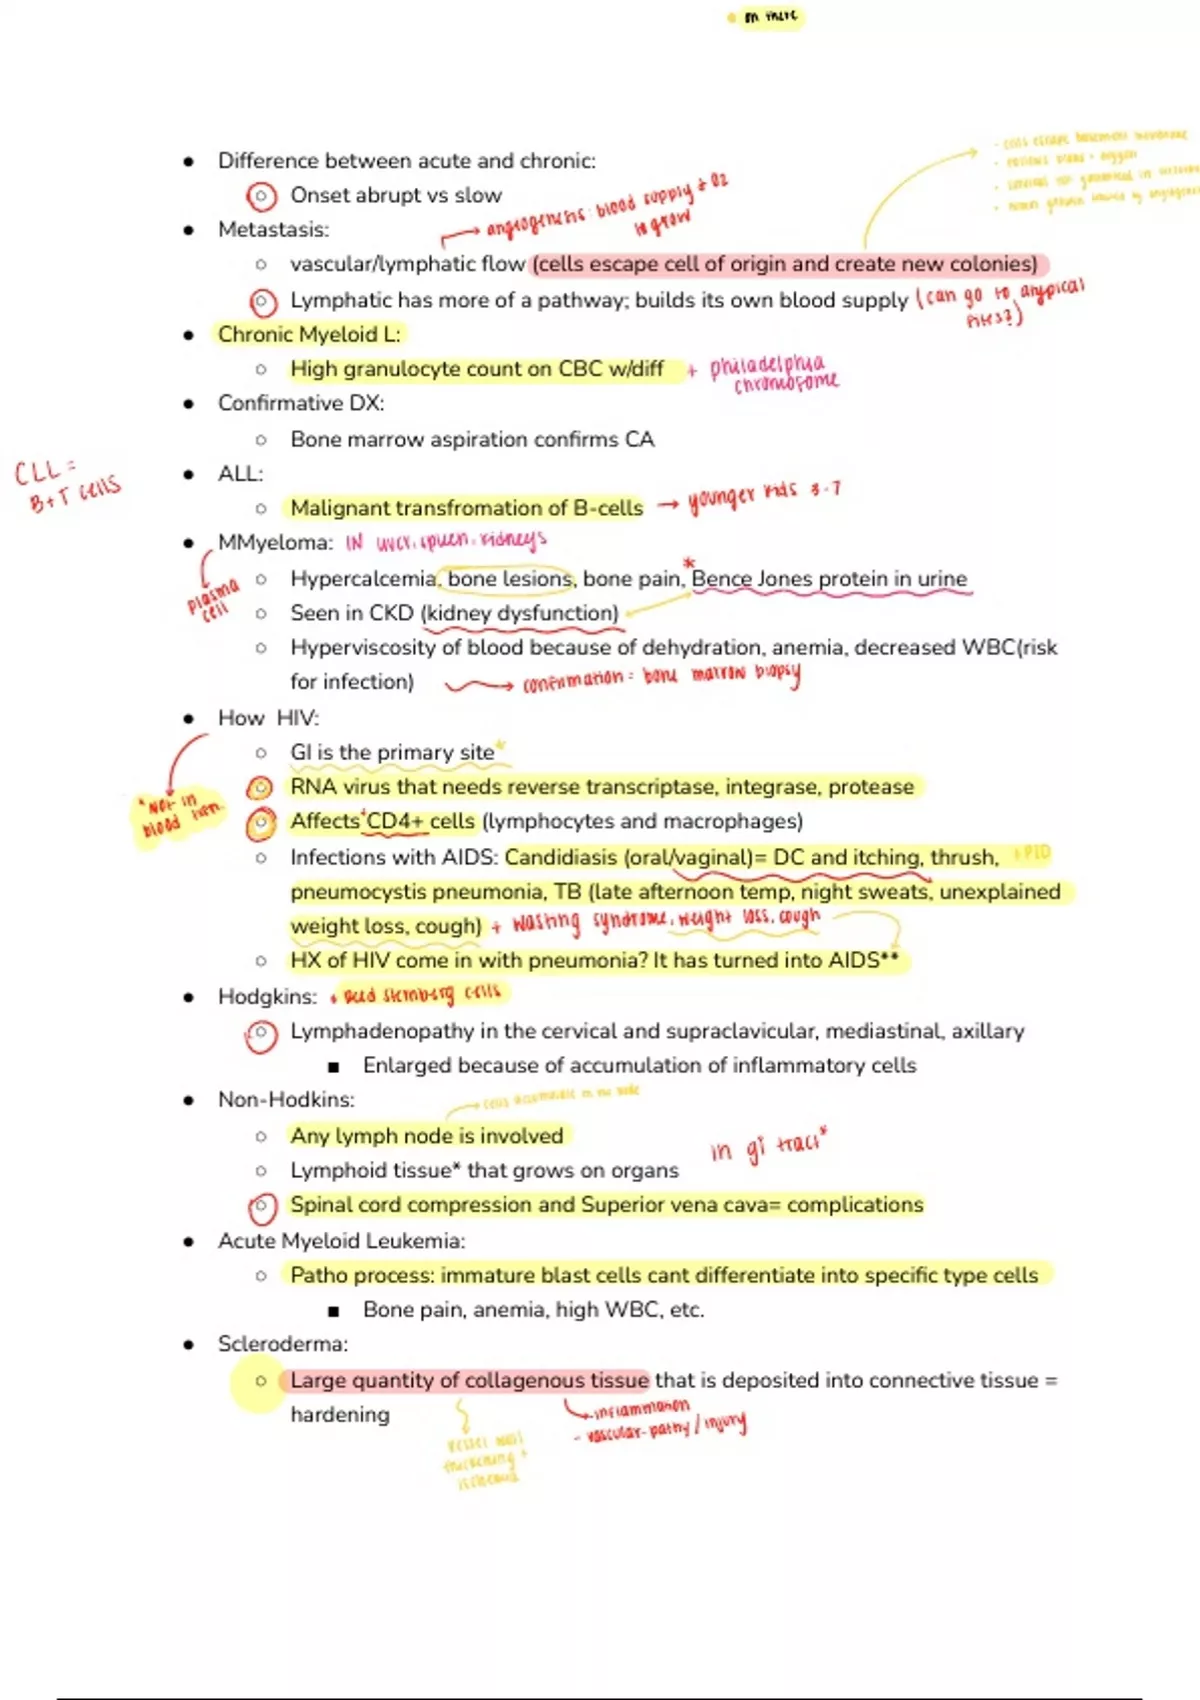 in there
● Difference between acute and chronic:
○ Onset abrupt vs slow
● Metastasis:
→ angiogenesis: blood supply + O2
to grow
○ vascular/lymphatic flow (cells escape cell of origin and create new colonies)
- cells escape basement membrane
○ Lymphatic has more of a pathway; builds its own blood supply (can go to atypical
sites?)
● Chronic Myeloid L:
○ High granulocyte count on CBC w/diff + philadelphia
chromosome
● Confirmative DX:
○ Bone marrow aspiration confirms CA
CLL =
B+T cells
● ALL:
○ Malignant transfromation of B-cells → younger kids 3-7
● MMyeloma: IN liver, spleen, kidneys
plasma
cell
○ Hypercalcemia, bone lesions, bone pain, *Bence Jones protein in urine
○ Seen in CKD (kidney dysfunction)
○ Hyperviscosity of blood because of dehydration, anemia, decreased WBC(risk
for infection) → confirmation = bone marrow biopsy
● How HIV:
○ GI is the primary site*
*Not in
blood
○ RNA virus that needs reverse transcriptase, integrase, protease
○ Affects *CD4+ cells (lymphocytes and macrophages)
○ Infections with AIDS: Candidiasis (oral/vaginal)= DC and itching, thrush, + PID
pneumocystis pneumonia, TB (late afternoon temp, night sweats, unexplained
weight loss, cough) + wasting syndrome, weight loss, cough
○ HX of HIV come in with pneumonia? It has turned into AIDS**
● Hodgkins: + Reed sternberg cells
○ Lymphadenopathy in the cervical and supraclavicular, mediastinal, axillary
■ Enlarged because of accumulation of inflammatory cells
● Non-Hodkins:
→ cells accumulate in the node
○ Any lymph node is involved
in gi tract*
○ Lymphoid tissue* that grows on organs
○ Spinal cord compression and Superior vena cava= complications
● Acute Myeloid Leukemia:
○ Patho process: immature blast cells cant differentiate into specific type cells
■ Bone pain, anemia, high WBC, etc.
● Scleroderma:
○ Large quantity of collagenous tissue that is deposited into connective tissue =
hardening
- inflammation
- vascular-pathy / injury
vessel wall
thickening +
ischemia